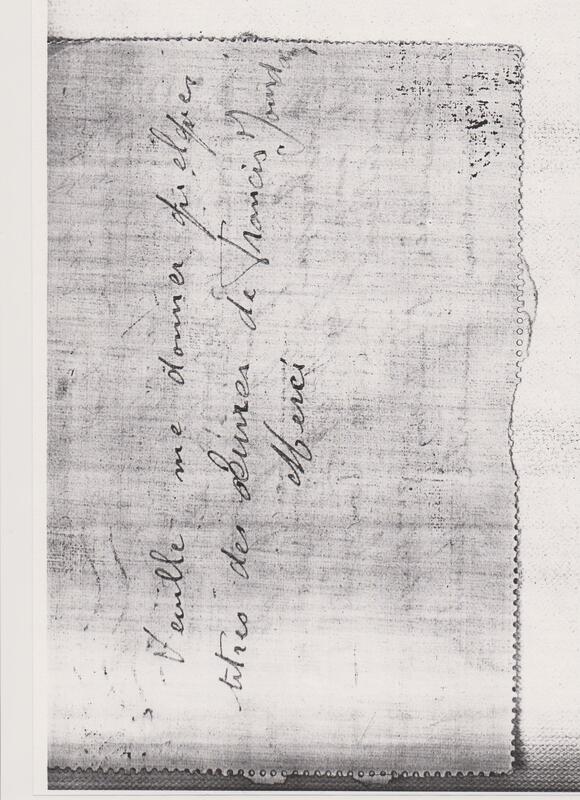 Veuille me donner quelques
titres des Œuvres de Francis
Merci